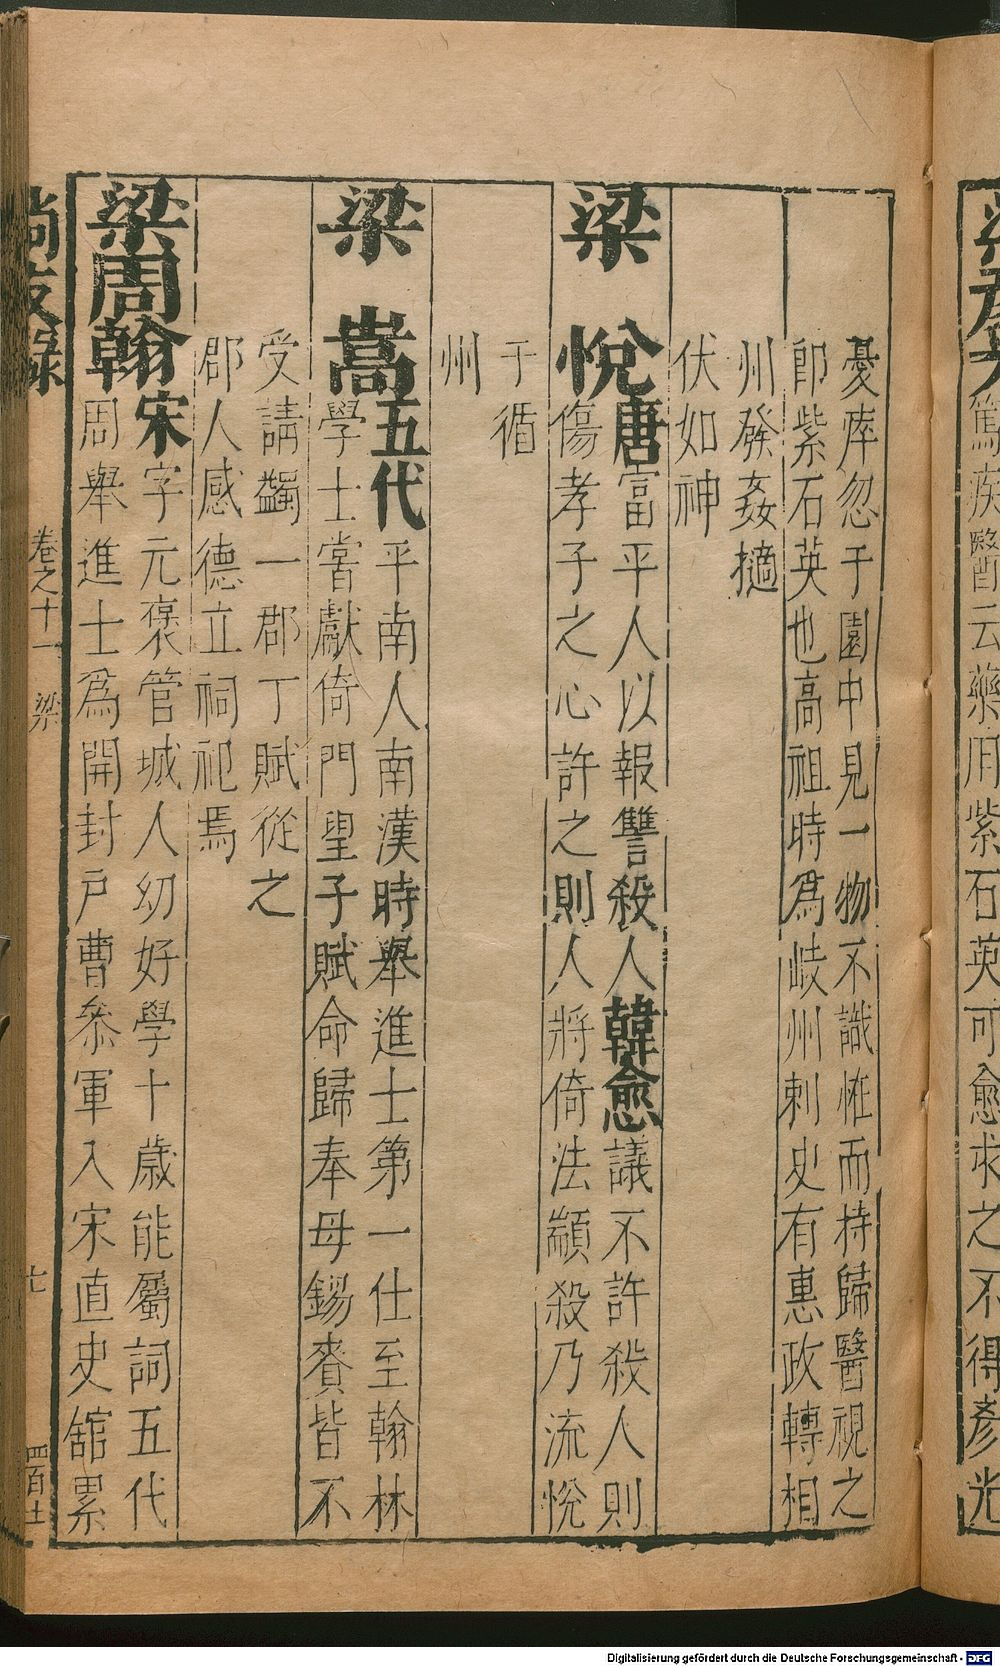 篤疾醫云藥用紫石英可愈求之不得彥光
憂瘁忽于園中見一物不識恠而持歸醫視之
卽紫石英也高祖時爲岐州刺史有惠政轉相
州發姦擿
伏如神
梁悅唐富平人以報讐殺人韓愈議不許殺人則
傷孝子之心許之則人將倚法顓殺乃流悅
于循
州
梁嵩五代平南人南漢時舉進士第一仕至翰林
學士嘗獻倚門望子賦命歸奉母錫賚皆不
受請蠲一郡丁賦從之
郡人感德立祠祀焉
梁周翰宋字元褒管城人幼好學十歲能屬詞五代
周舉進士爲開封戶曹叅軍入宋直史舘累
尚友錄 卷之十一 梁 七
Digitalisierung gefördert durch die Deutsche Forschungsgemeinschaft - DFG